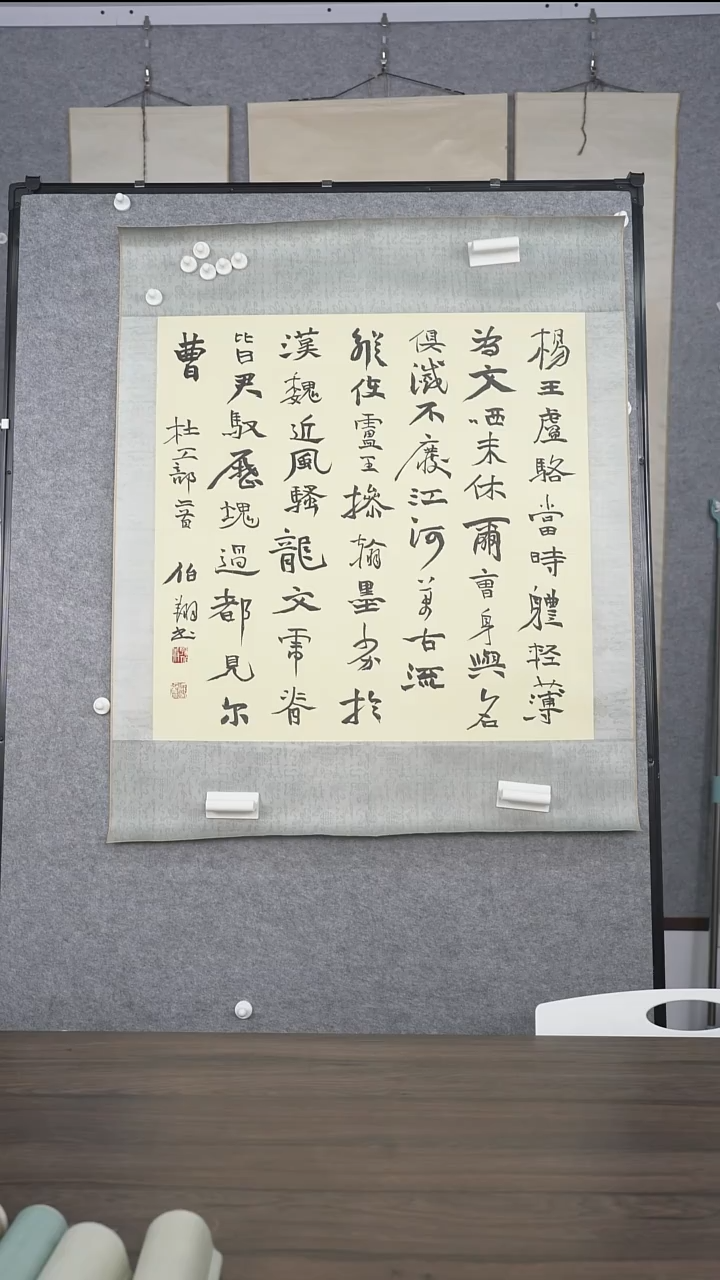 楊王盧駱當時軆輕薄
為文哂未休爾曹身與名
俱滅不廢江河萬古流
縱使盧王操翰墨劣於
漢魏近風騷龍文虎脊
皆君馭歷塊過都見尔
曹 杜工部二首 伯翔书